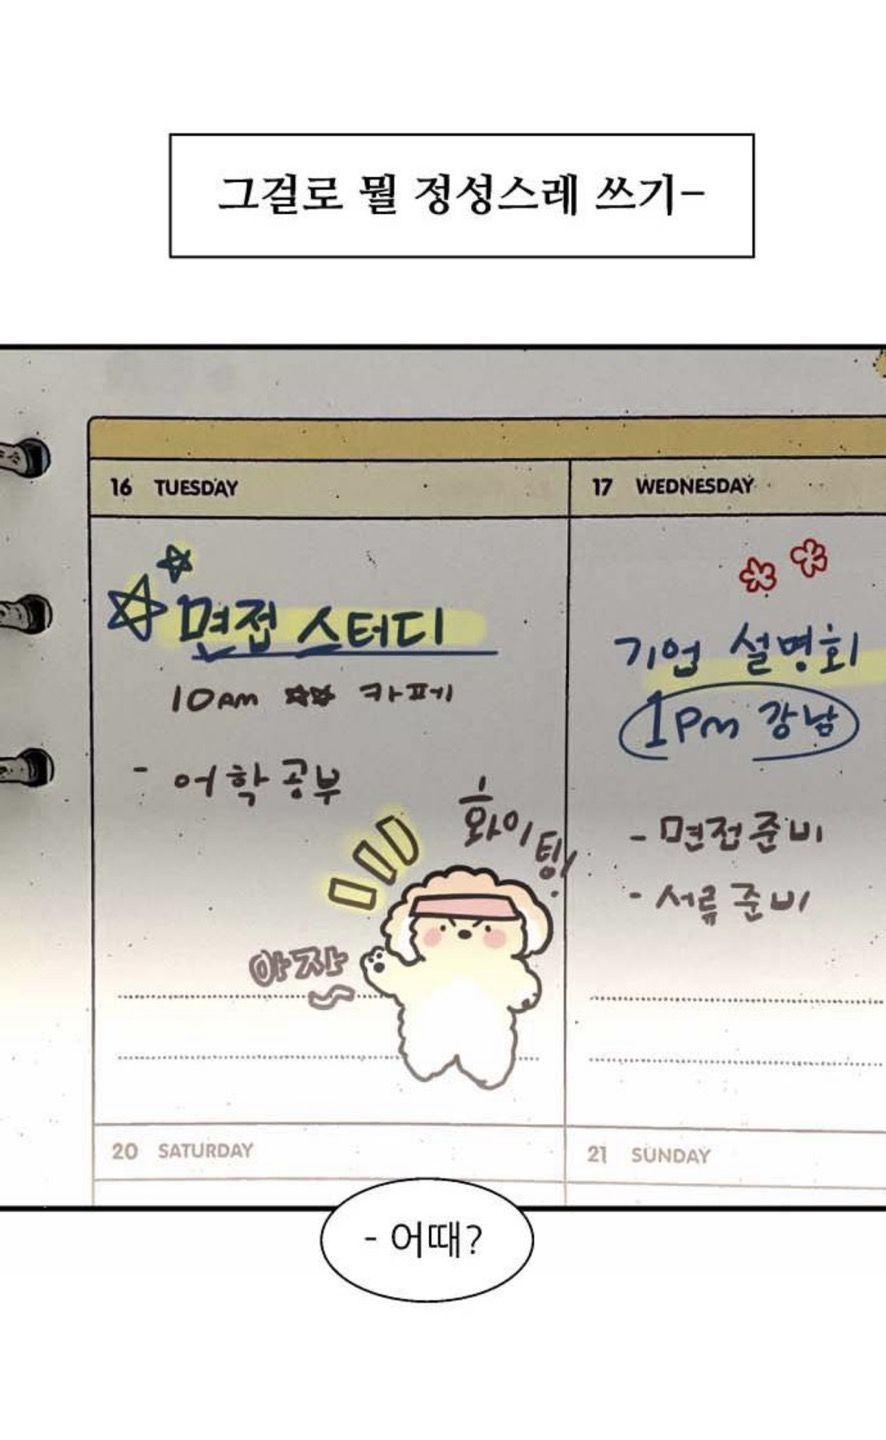 그걸로 뭘 정성스레 쓰기-
16 TUESDAY
면접 스터디
10AM ☆☆ 카페
- 어학공부
화이팅!
아자~
17 WEDNESDAY
기업 설명회
1PM 강남
- 면접준비
- 서류준비
20 SATURDAY
21 SUNDAY
- 어때?